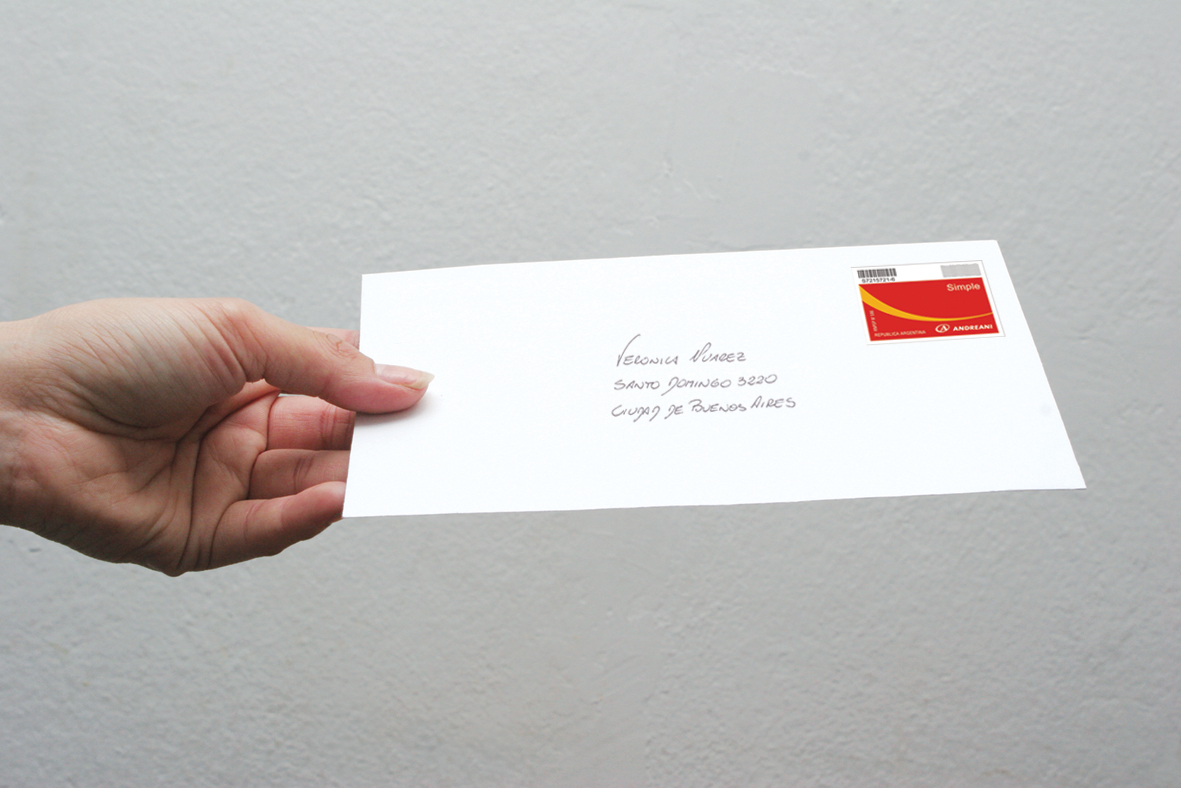 57215721-6
Simple
REPUBLICA ARGENTINA
ANDREANI
VERONICA
SANTO DOMINGO 3220
CIUDAD DE BUENOS AIRES